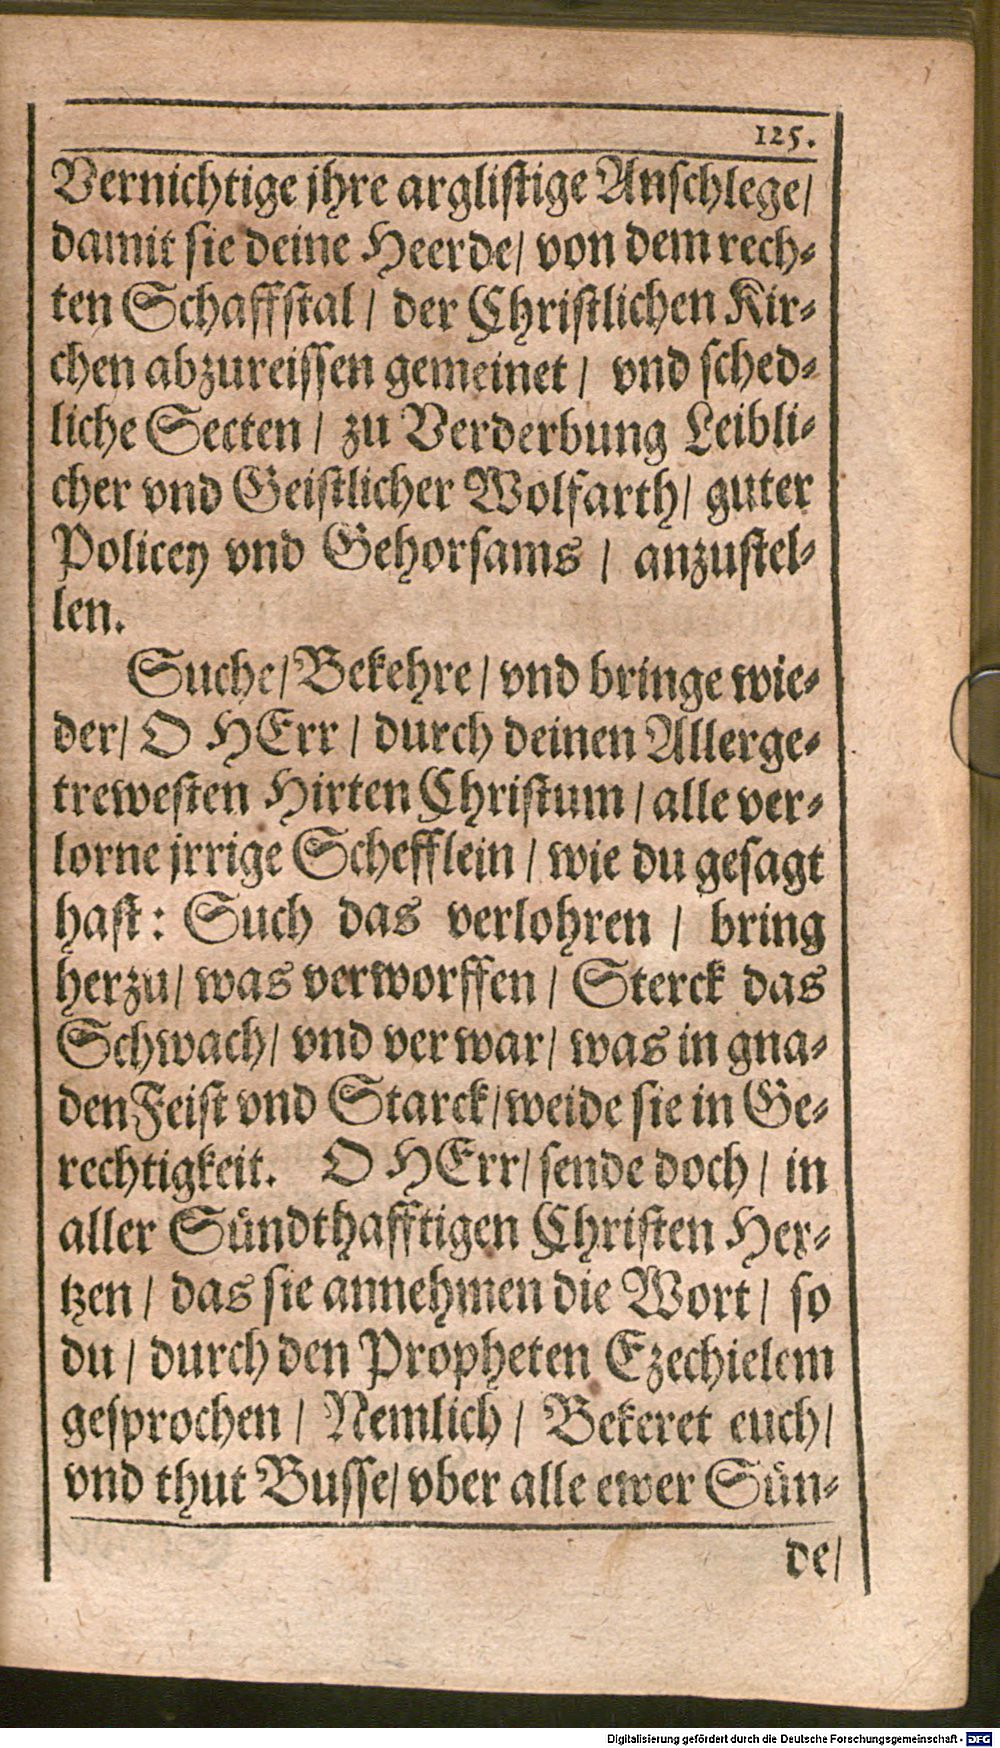 125.
Vernichtige jhre arglistige Anschlege/
damit sie deine Heerde/ von dem rech-
ten Schaffstal / der Christlichen Kir-
chen abzureissen gemeinet / vnd sched-
liche Secten / zu Verderbung Leibli-
cher vnd Geistlicher Wolfarth/ guter
Policey vnd Gehorsams / anzustel-
len.
Suche/ Bekehre / vnd bringe wie-
der/ O HErr / durch deinen Allerge-
trewesten Hirten Christum / alle ver-
lorne jrrige Schefflein / wie du gesagt
hast: Such das verlohren / bring
herzu/ was verworffen / Sterck das
Schwach/ vnd verwar/ was in gna-
den Feist vnd Starck/ weide sie in Ge-
rechtigkeit. O HErr/ sende doch / in
aller Sündthafftigen Christen Her-
tzen / das sie annehmen die Wort / so
du / durch den Propheten Ezechielem
gesprochen / Nemlich / Bekeret euch/
vnd thut Busse/ vber alle ewer Sün-
de/
Digitalisierung gefördert durch die Deutsche Forschungsgemeinschaft - DFG